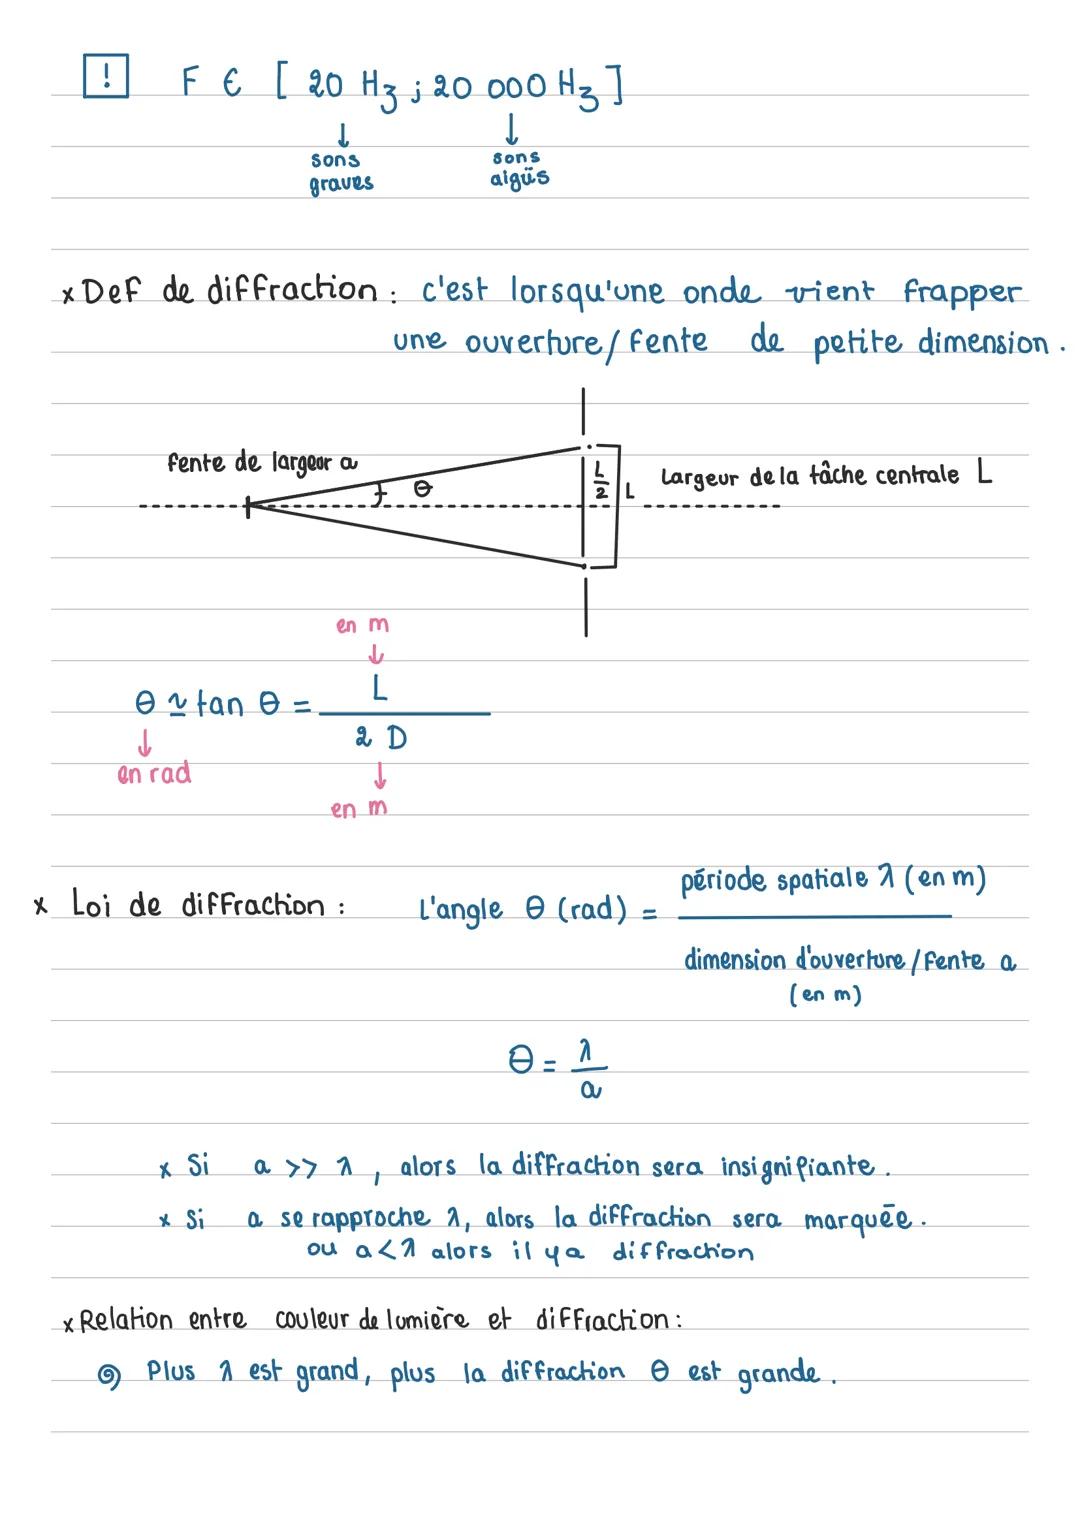 ! F ∈ [ 20 Hz ; 20 000 Hz ]
↓ ↓
sons graves
sons aigüs
x Def de diffraction : c'est lorsqu'une onde vient frapper
une ouverture / fente de petite dimension .
fente de largeur a
θ
L/2
L
Largeur de la tâche centrale L
en m
↓
θ ≃ tan θ = L / 2 D
↓ ↓
en rad
en m
x Loi de diffraction : L'angle θ (rad) = période spatiale λ (en m)
dimension d'ouverture / fente a
(en m)
θ = λ / a
x Si a >> λ , alors la diffraction sera insignifiante .
x Si a se rapproche λ, alors la diffraction sera marquée .
ou a < λ alors il y a diffraction
x Relation entre couleur de lumière et diffraction :
Plus λ est grand, plus la diffraction θ est grande .